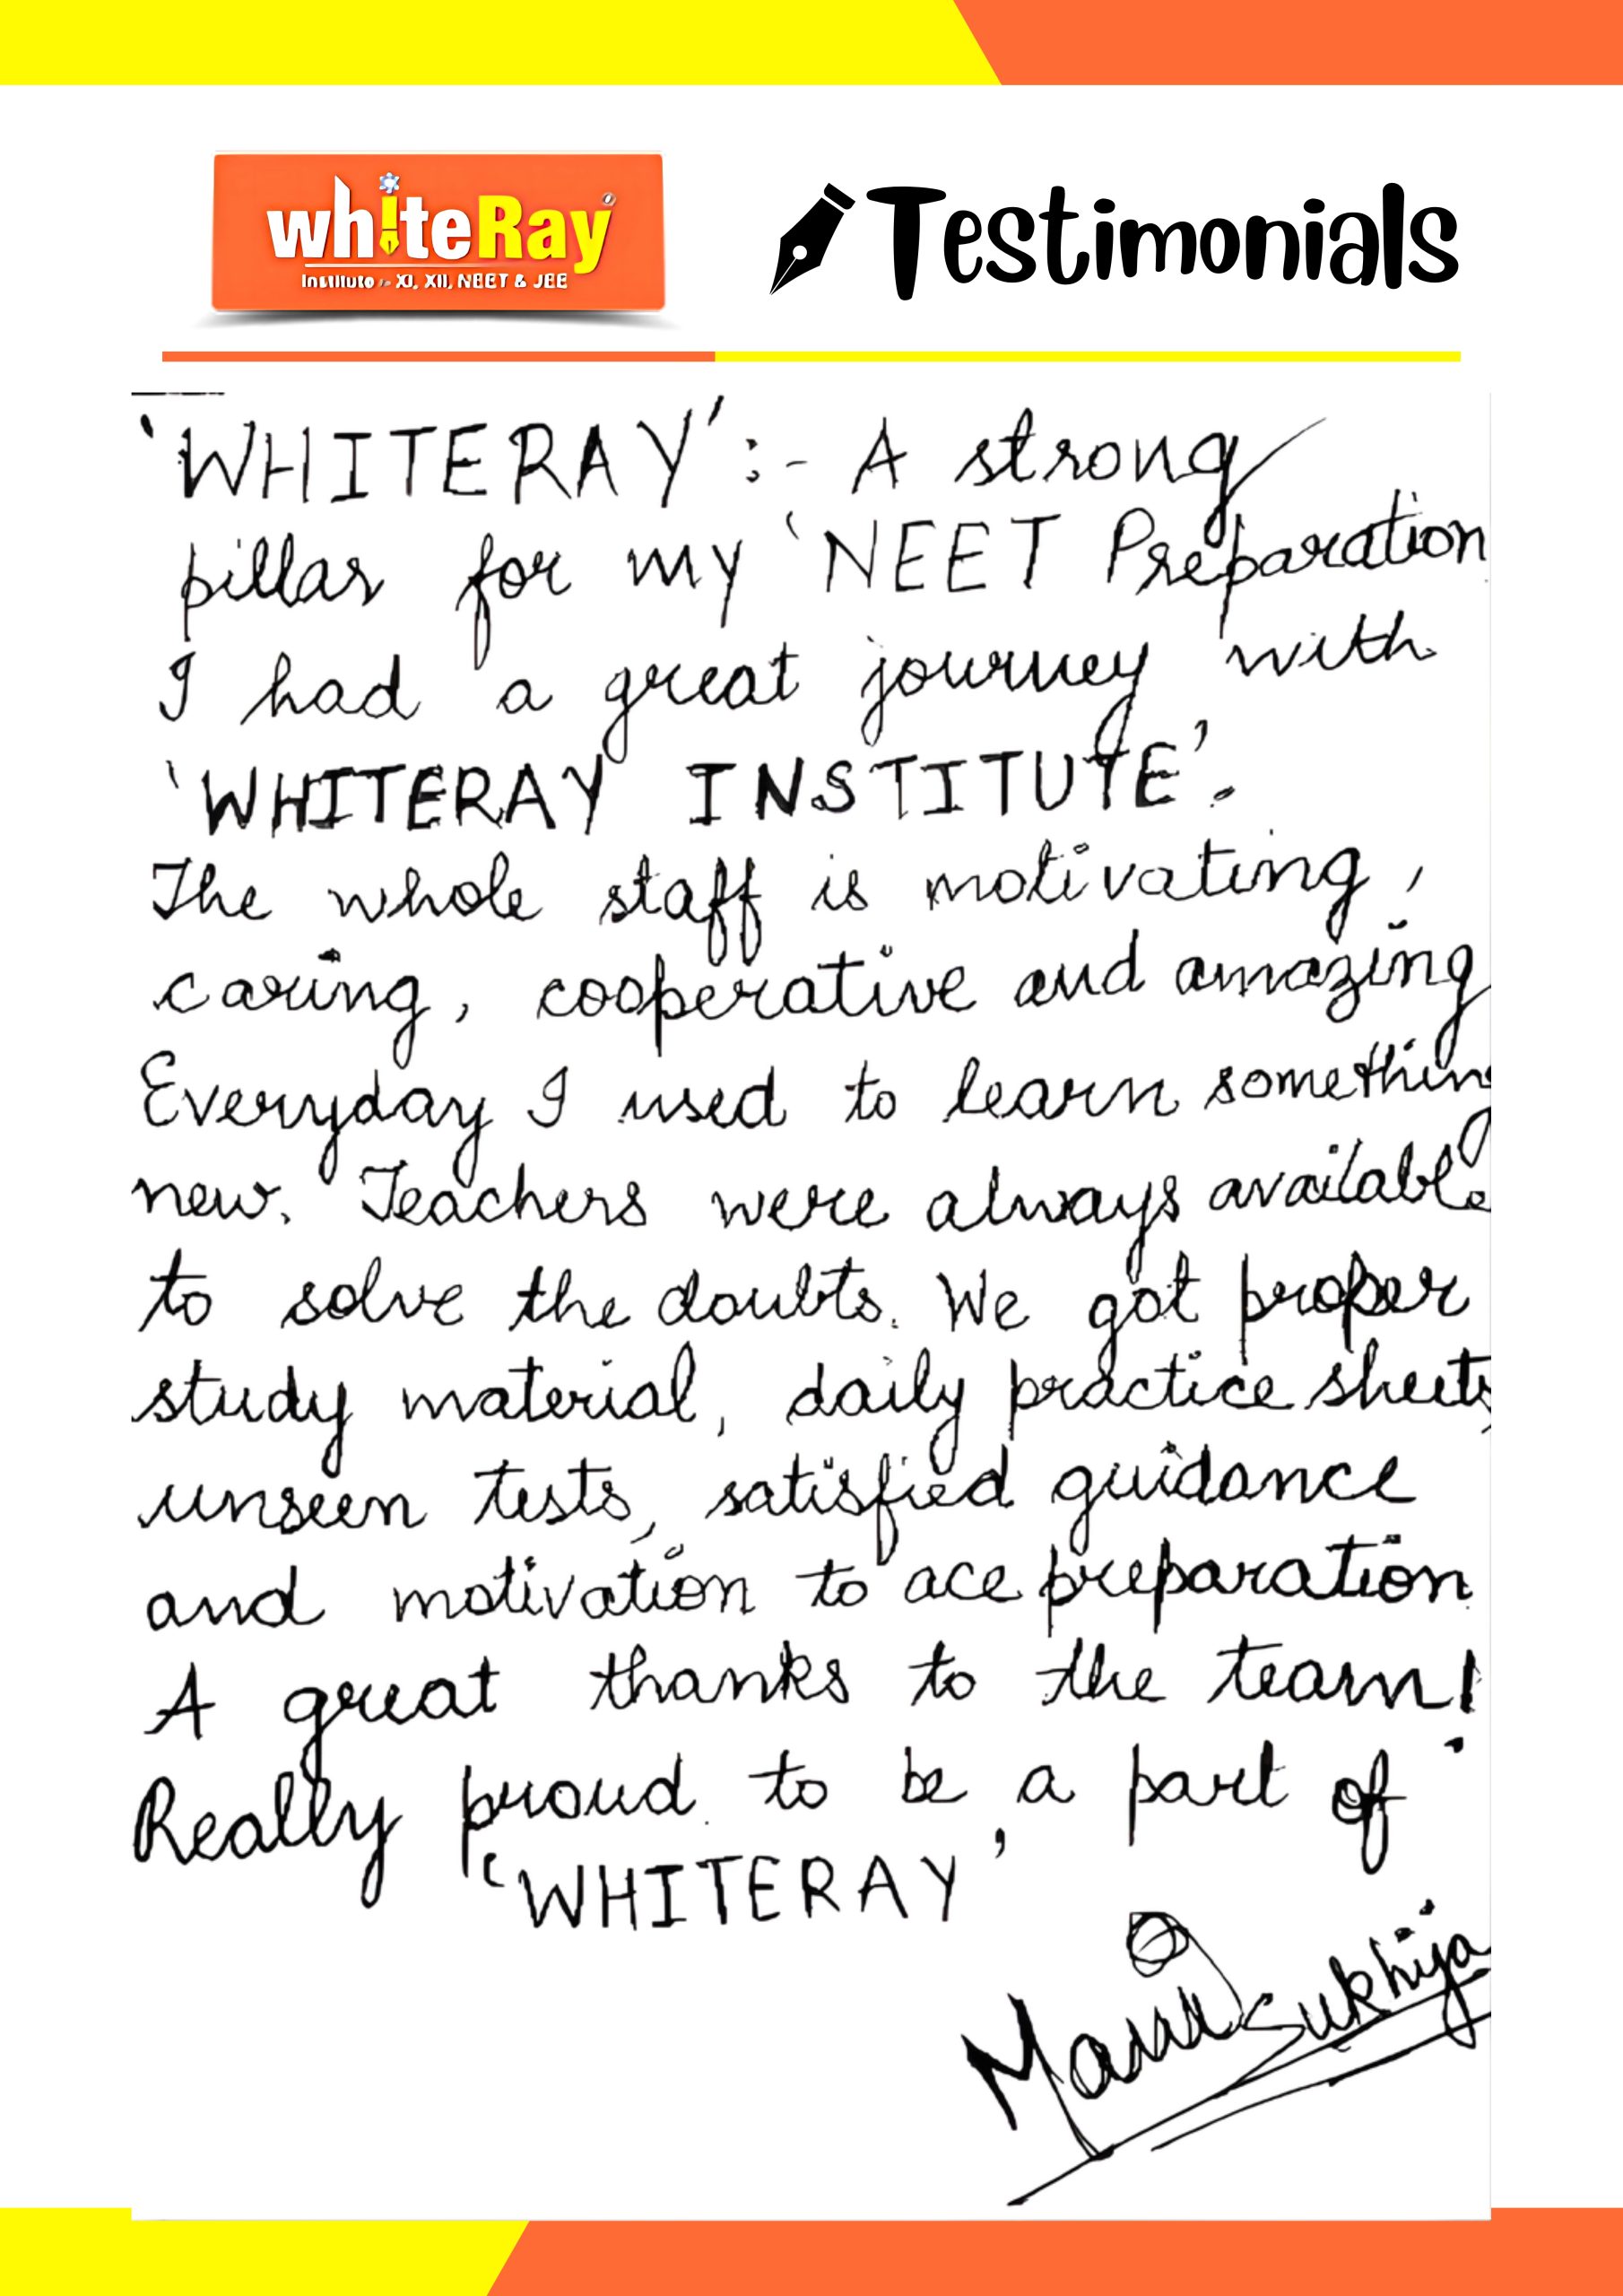 whiteRay
Institute - XI, XII, NEET & JEE
Testimonials
'WHITERAY' :- A strong
pillar for my 'NEET Preparation
I had a great journey with
'WHITERAY INSTITUTE'.
The whole staff is motivating,
caring, cooperative and amazing
Everyday I used to learn something
new. Teachers were always available
to solve the doubts. We got proper
study material, daily practice sheets,
unseen tests, satisfied guidance
and motivation to ace preparation.
A great thanks to the team!
Really proud to be a part of
'WHITERAY'
Mani Sukhija